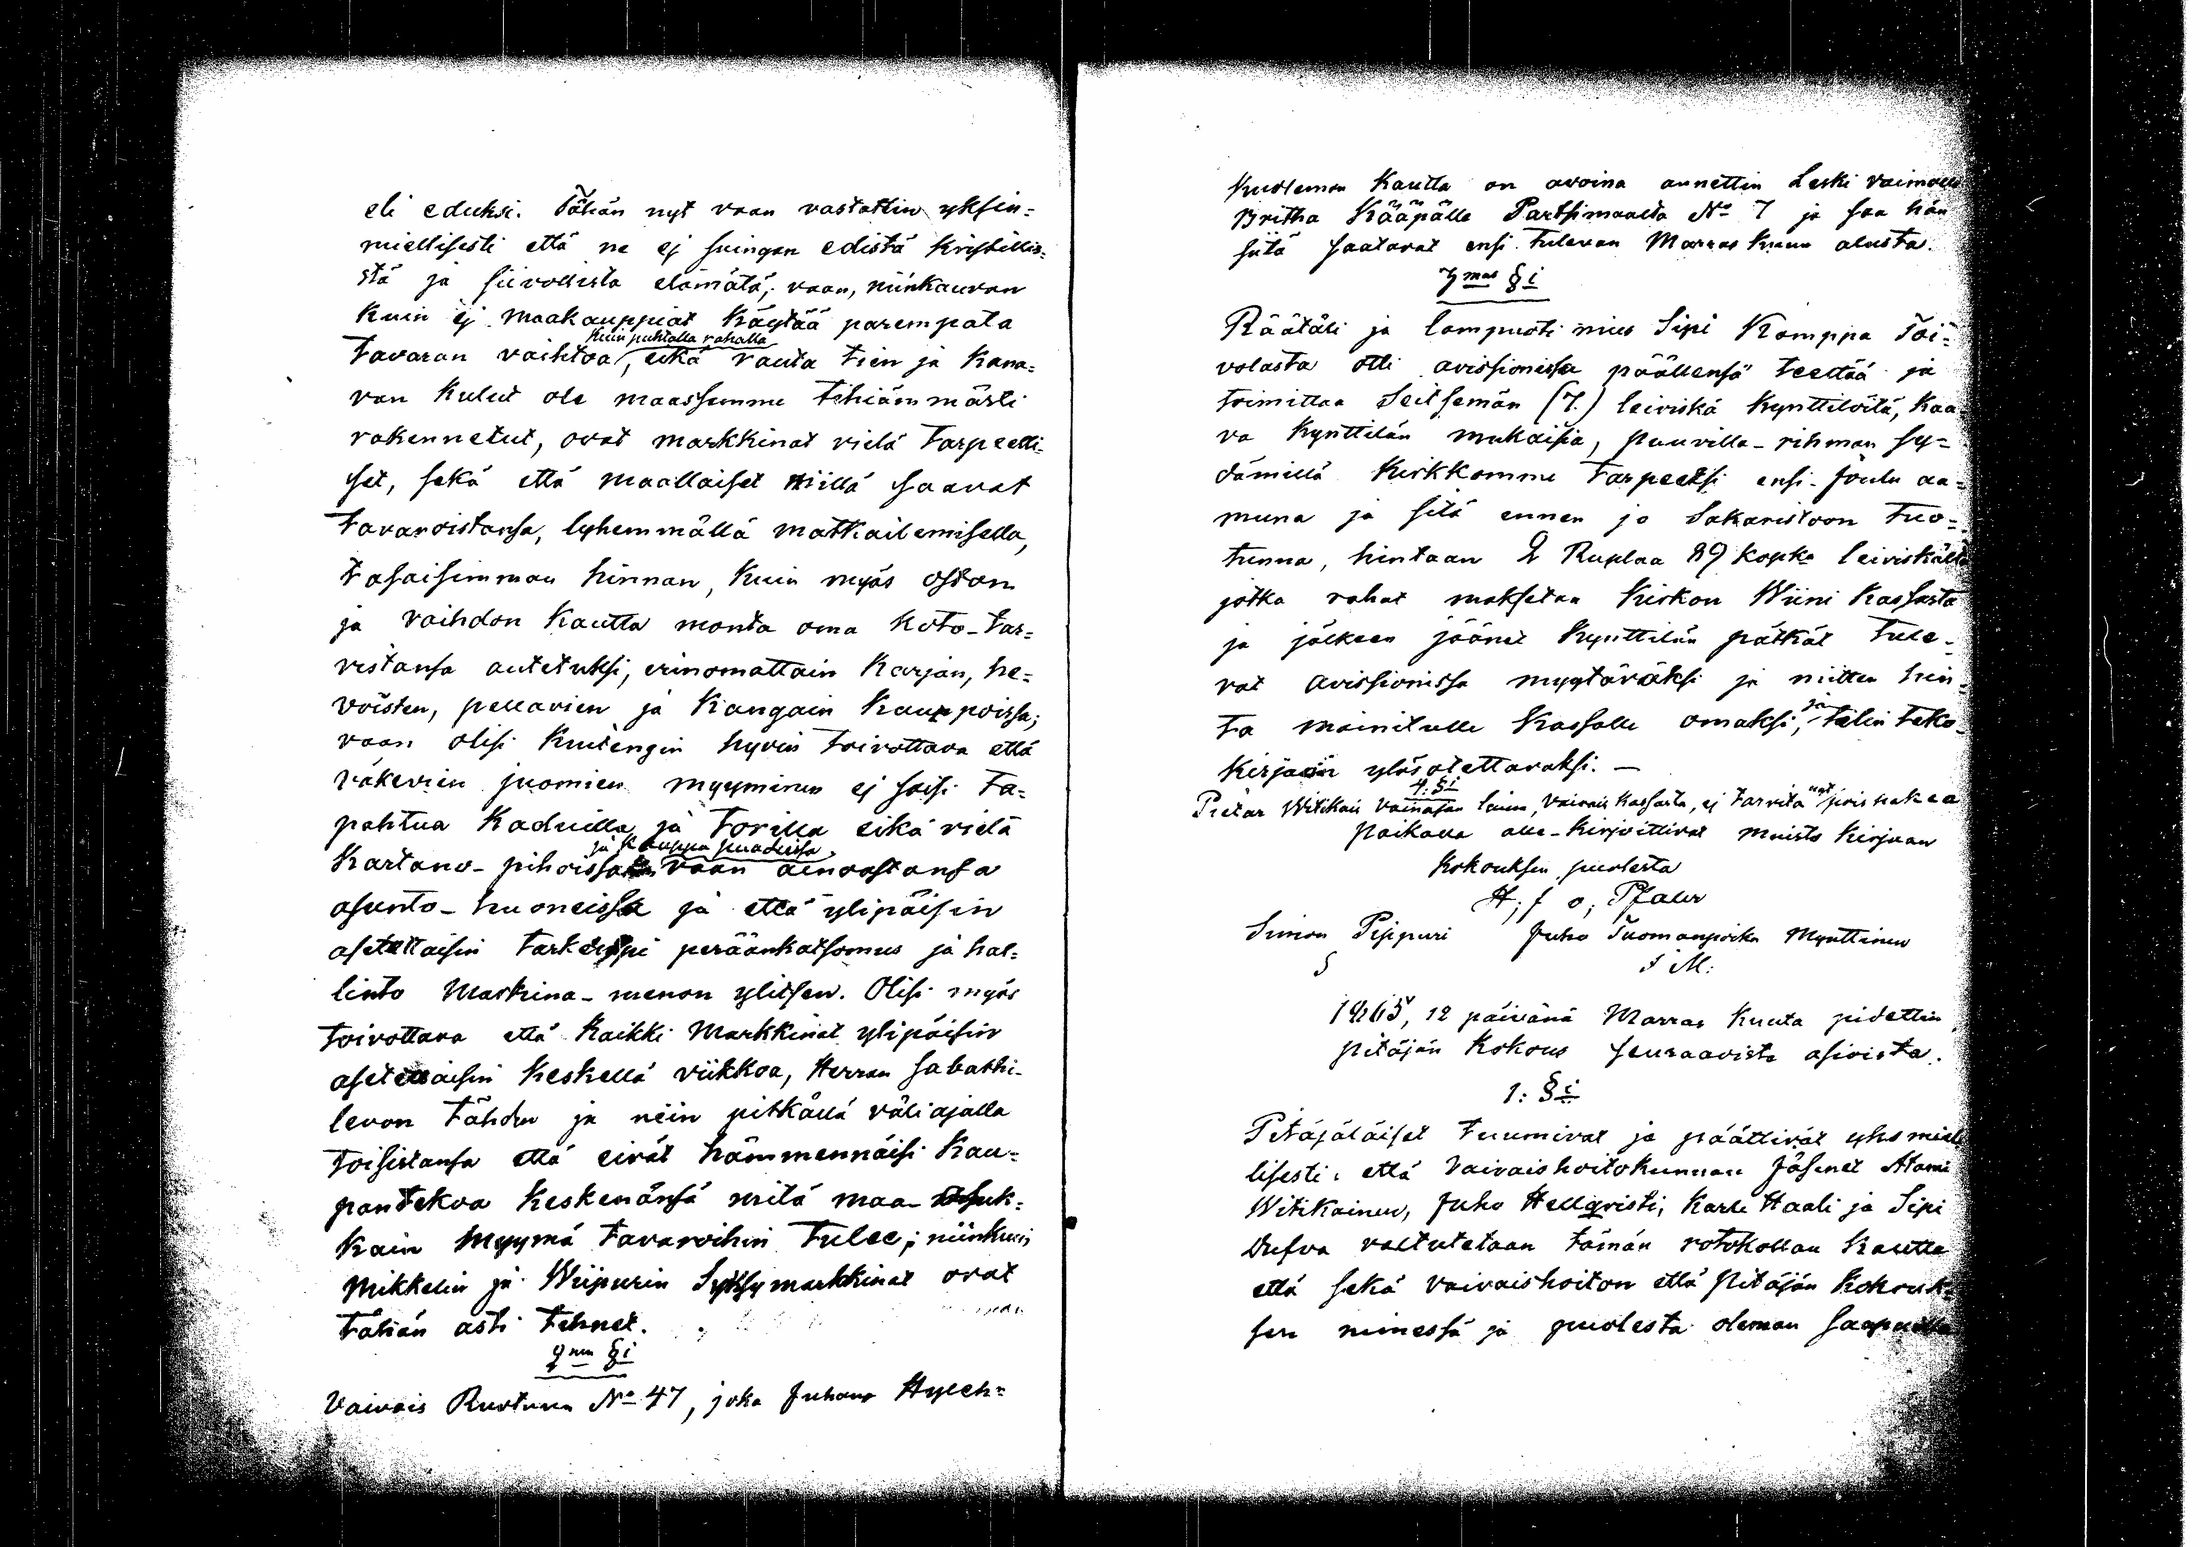 eli eduksi. Tähän nyt vaan vastattiin yksin=
mielisesti että ne ej suingan edistä kristillis=
stä ja siivollista elämätä; vaan, niinkauvan
kuin ej maakauppiat käytää parempata
kuin puhtalla rahalla
tavaran vaihtoa, eikä rauta tien ja kana=
van kulut ole maassamme tihiämmästi
rakennetut, ovat markkinat vielä tarpeelli=
set, sekä että maallaiset niillä saavat
tavaroistansa, lyhemmällä matkailemisella,
tasaisimman hinnan, kuin myös oston
ja vaihdon kautta monta oma koto-tar=
vistansa autetuksi, erinomattain karjan, he=
voisten, pellavien ja kangain kauppoissa;
vaan olisi kuitengin hyvin toivottava että
väkevien juomien myyminen ej saisi ta=
pahtua kaduilla ja torilla eikä vielä
ja kauppa puadeissa
kartano-pihoissa vaan ainoastansa
asunto-huoneissa ja että ylipäisin
asetettaisin tarkempi peräänkatsomus ja hal=
linto Markina-menon ylitsen. Olisi myös
toivottava että kaikki Markkinat ylipäisin
asetettaisin keskellä viikkoa, Herran sabathi-
levon tähden ja niin pitkällä väliajalla
toisistansa että eivät hämmennäisi kau=
pantekoa keskenänsä mitä maa-
kain myymä tavaroihin tulee; niinkuin
Mikkelin ja Wiipurin Syksymarkkinat ovat
tähän asti tehnet.
§i
Vaivais Ruotunen No 47, joka Juhana
kuoleman kautta on avoina annettin Leski vaimolle
Britha Kääpälle Partsimaalta No 7 ja saa hän
siitä saatavat ensi tulevan Marraskuun alusta.
7mas §i
Räätäli ja lampuoti mies Sipi Komppa Toi=
volasta otti avissionissa päällensä teettää ja
toimittaa Seitsemän (7.) leiviskä kynttilöitä, kaa=
va kynttilän mukaisia, puuvilla-rihman sy=
dämillä kirkkomme tarpeeksi ensi-Joulu aa=
muna ja sitä ennen jo Sakaristoon tuo=
tunna, hintaan 2 Ruplaa 89 kopka leiviskältä
jotka rahat maksetaa kirkon Wiini kassasta
ja jälkeen jäänet kynttilän pätkät tule=
vat avissionissa myytäväksi ja niitten hin=
ta mainitulle kassalle omaksi, ja tilin teko=
kirjaan ylösotettavaksi. —
4. §i
Pietar Witikain vainajan laina, vaivais kassasta, ej tarvita nyt pois hakea
paikalla alle-kirjoittivat muisto kirjaan
kokouksen puolesta
Simon Pippuri Juho Tuomanpoika Mynttinen
S J M:
1865, 12 päivänä Marras kuuta pidettin
pitäjän kokous seuraavista asioista.
1: §i
Pitäjäläiset tuumivat ja päättivät yks miel
lisesti: että Vaivaishoitokunnan Jäsenet Atami
Witikainen, Juho Hellqvisti, Karle Haali ja Sipi
Dufva valtutetaan tämän rotokollan kautta
että sekä vaivaishoiton että pitäjän kokouk=
sen nimessä ja puolesta oleman saapuilla